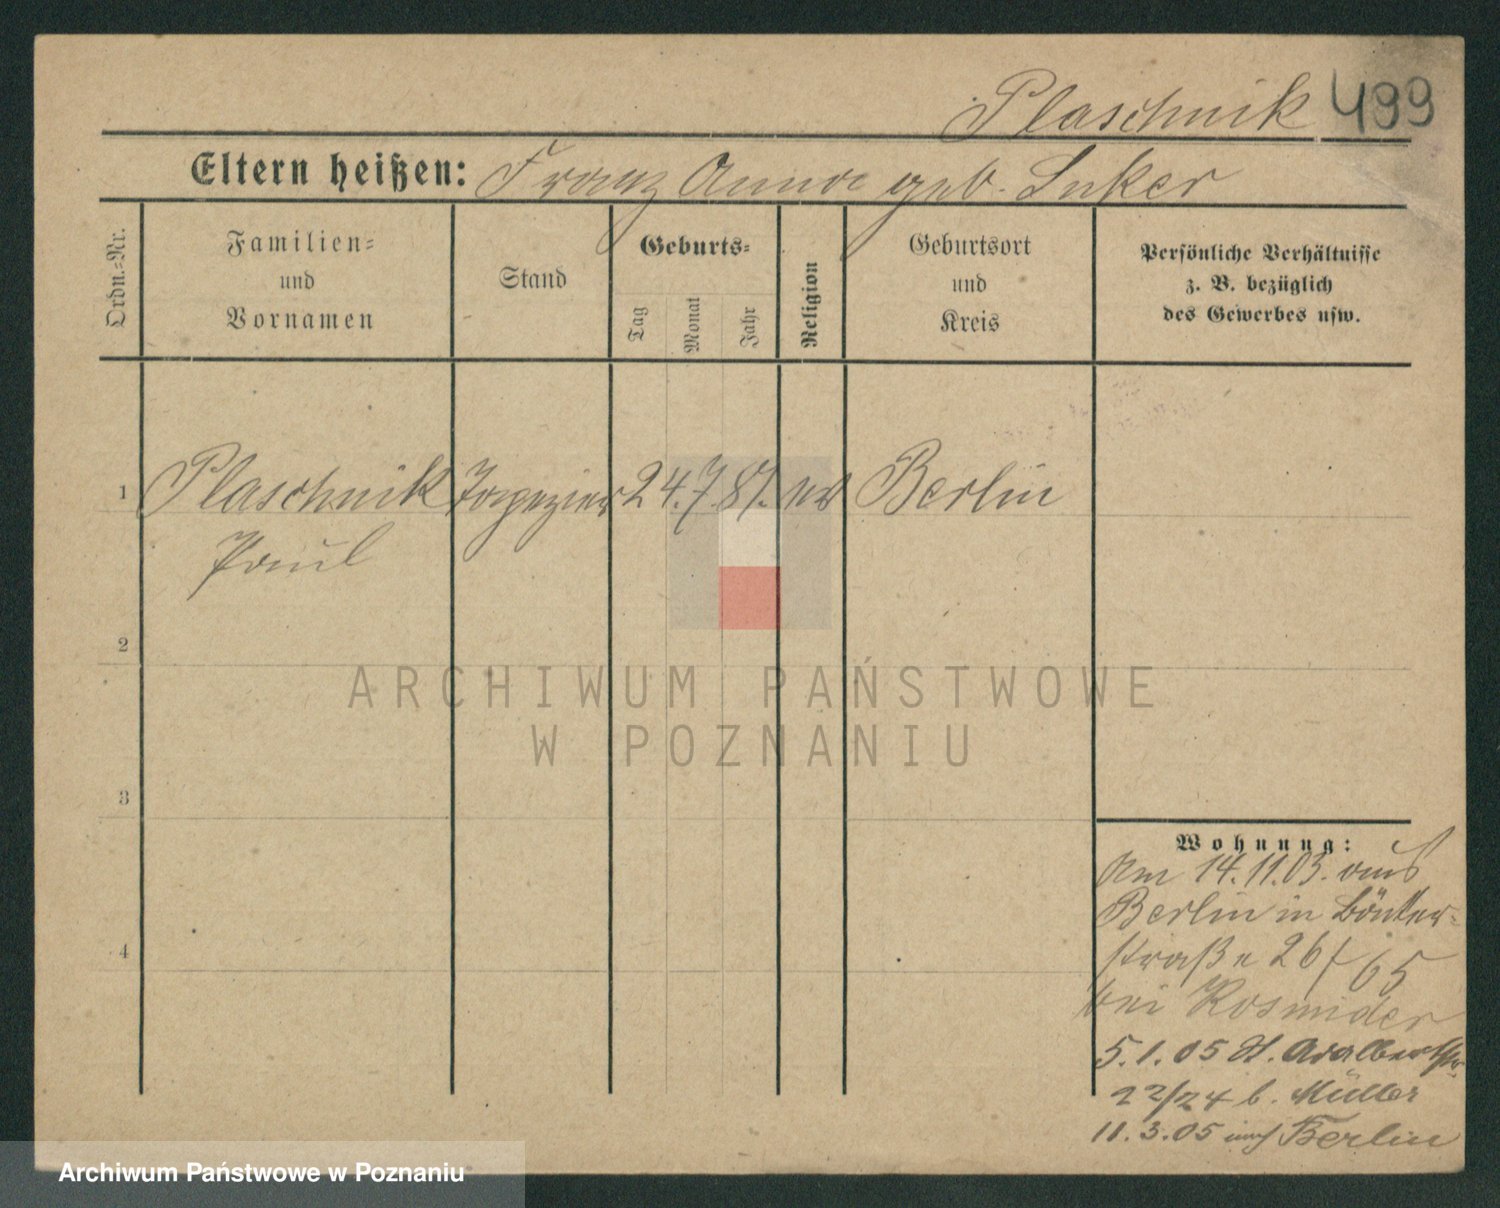 Plaschnik 499
Eltern heißen: Franz Anna geb. Luker
Ordn.=Nr.
Familien=
und
Vornamen
Stand
Geburts=
Tag
Monat
Jahr
Religion
Geburtsort
und
Kreis
Persönliche Verhältnisse
z. B. bezüglich
des Gewerbes usw.
1 Plaschnik Tapezier 24. 7. 81. ev Berlin
Paul
2
3
4
Wohnung:
Am 14.11.03. aus
Berlin in
straße 26/65
bei Kosmider
5.1.05 St. Adalbertstr.
22/24 b. Müller
11.3.05 Berlin
ARCHIWUM PAŃSTWOWE
W POZNANIU
Archiwum Państwowe w Poznaniu